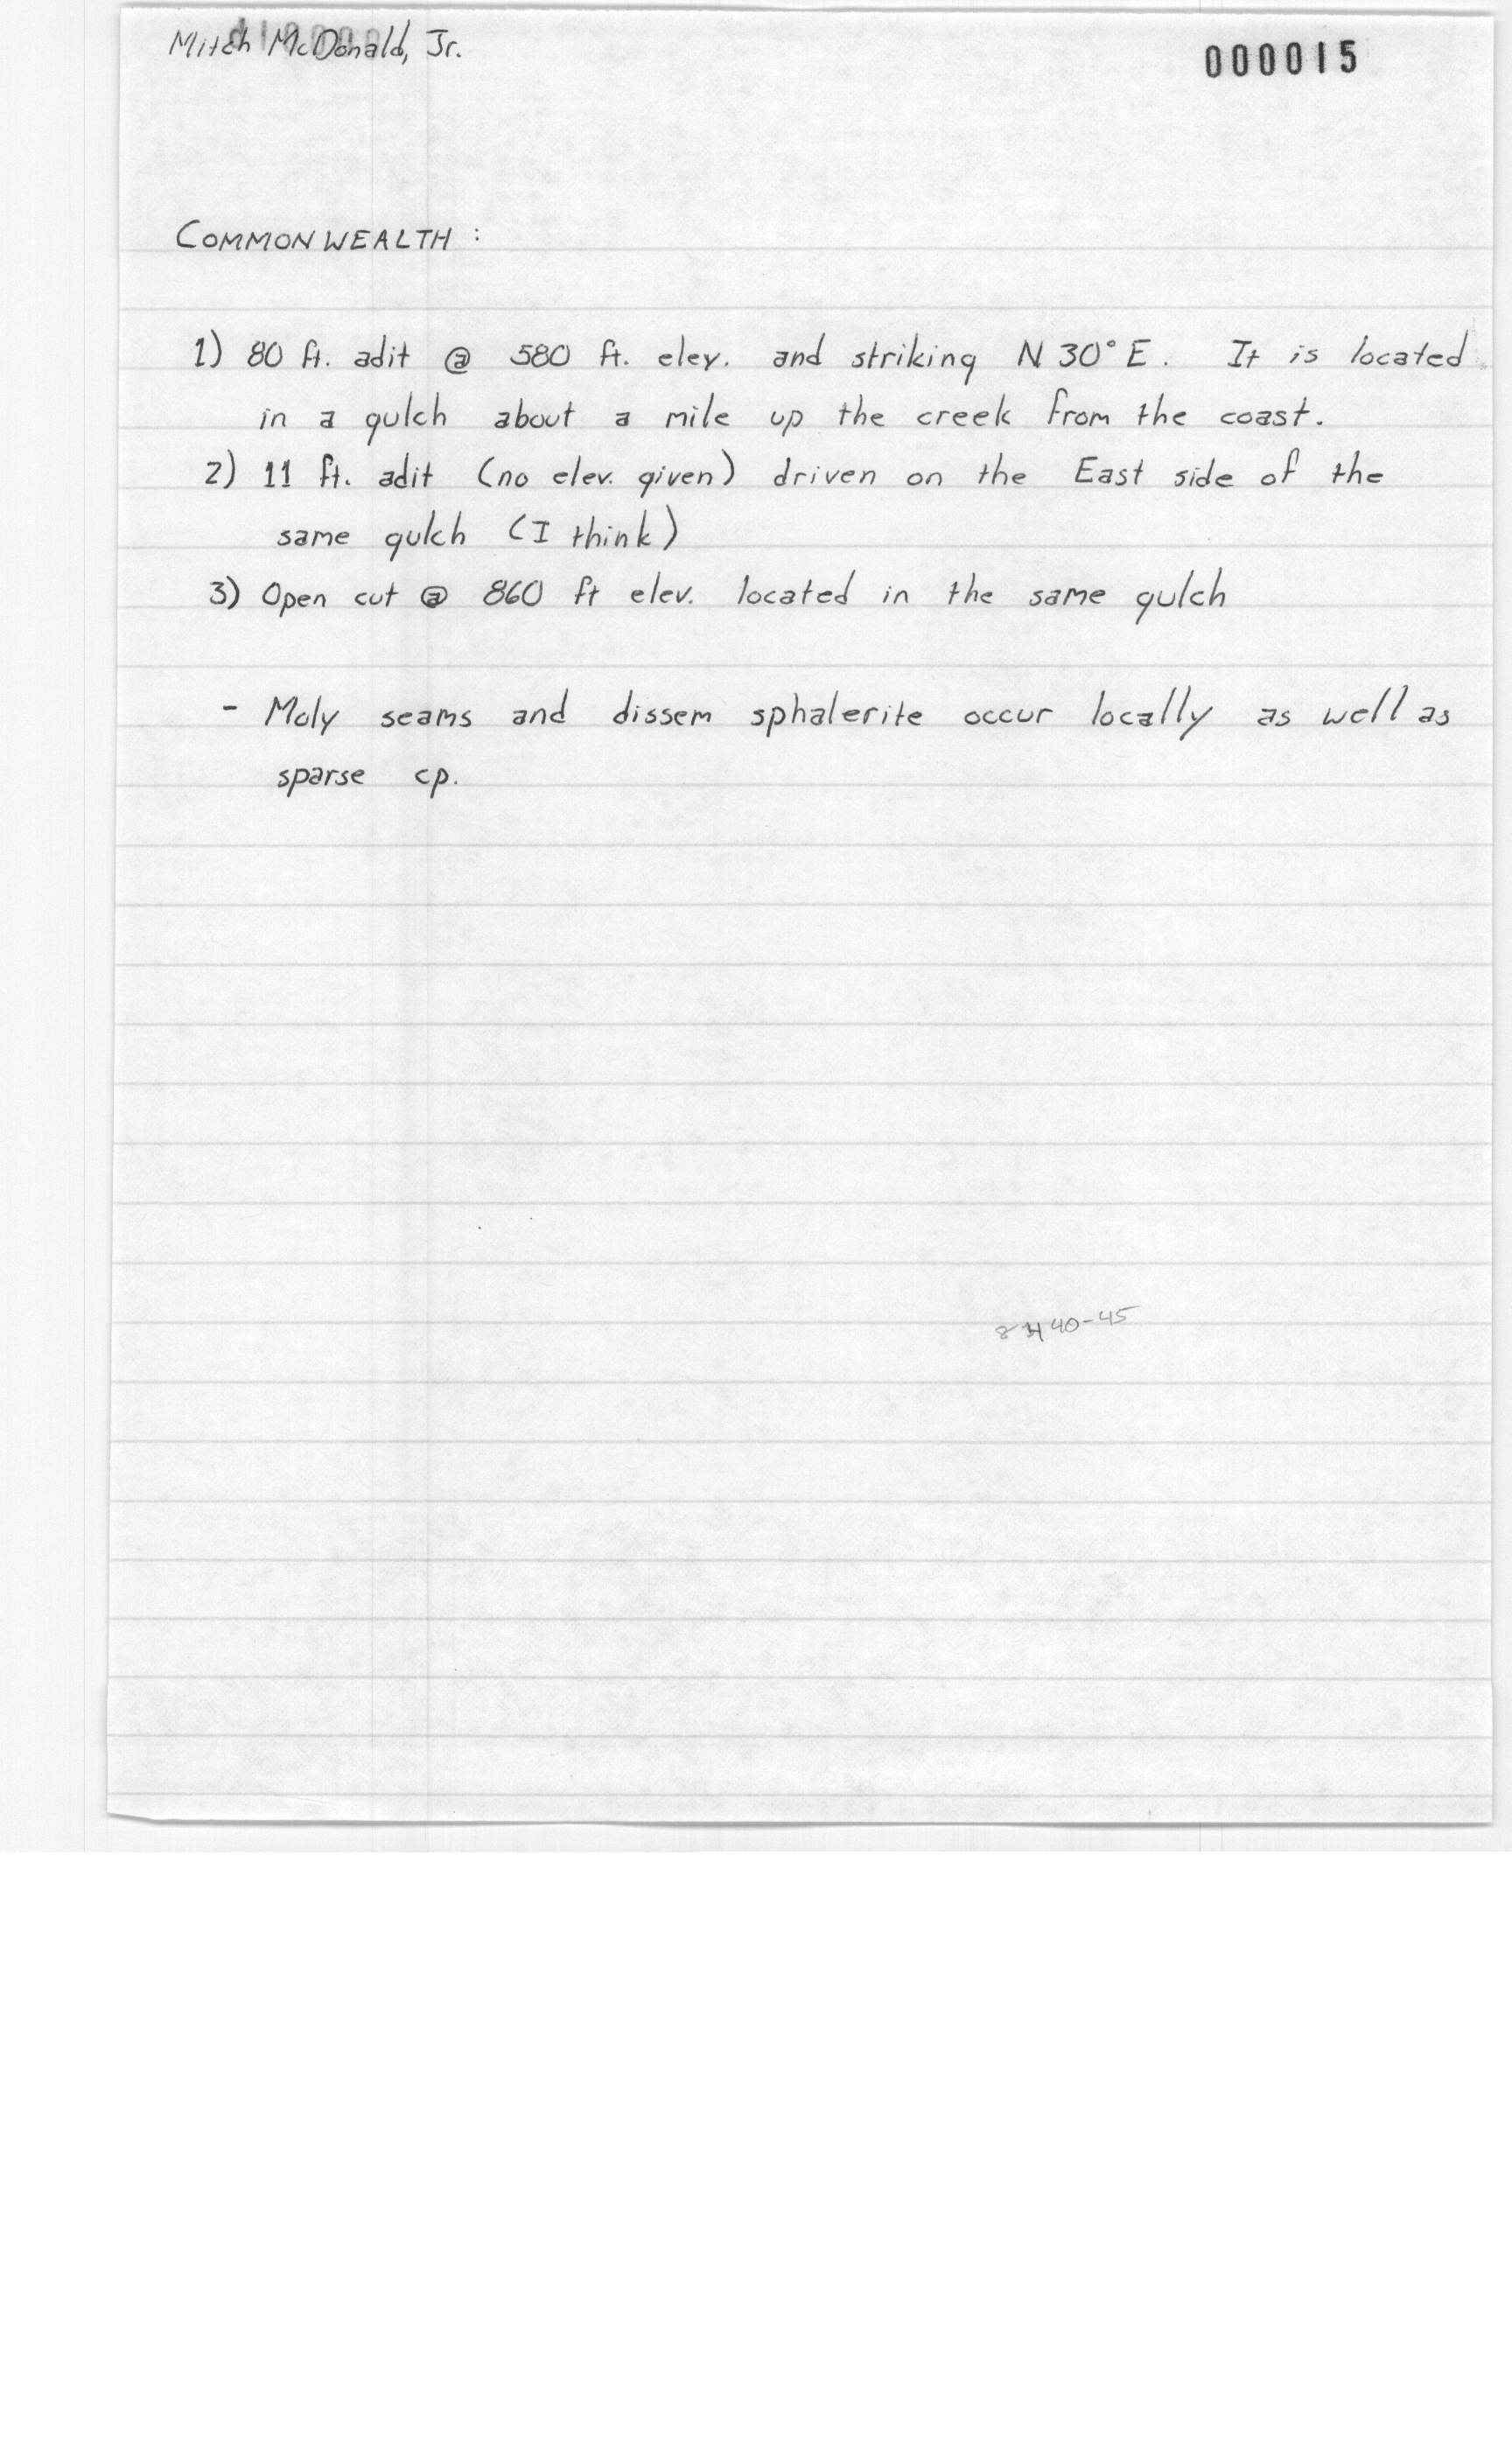 Mitch McDonald, Jr.
000015
COMMONWEALTH :
1) 80 ft. adit @ 580 ft. elev. and striking N 30° E. It is located
in a gulch about a mile up the creek from the coast.
2) 11 ft. adit (no elev. given) driven on the East side of the
same gulch (I think)
3) Open cut @ 860 ft elev. located in the same gulch
- Moly seams and dissem sphalerite occur locally as well as
sparse cp.
40-45